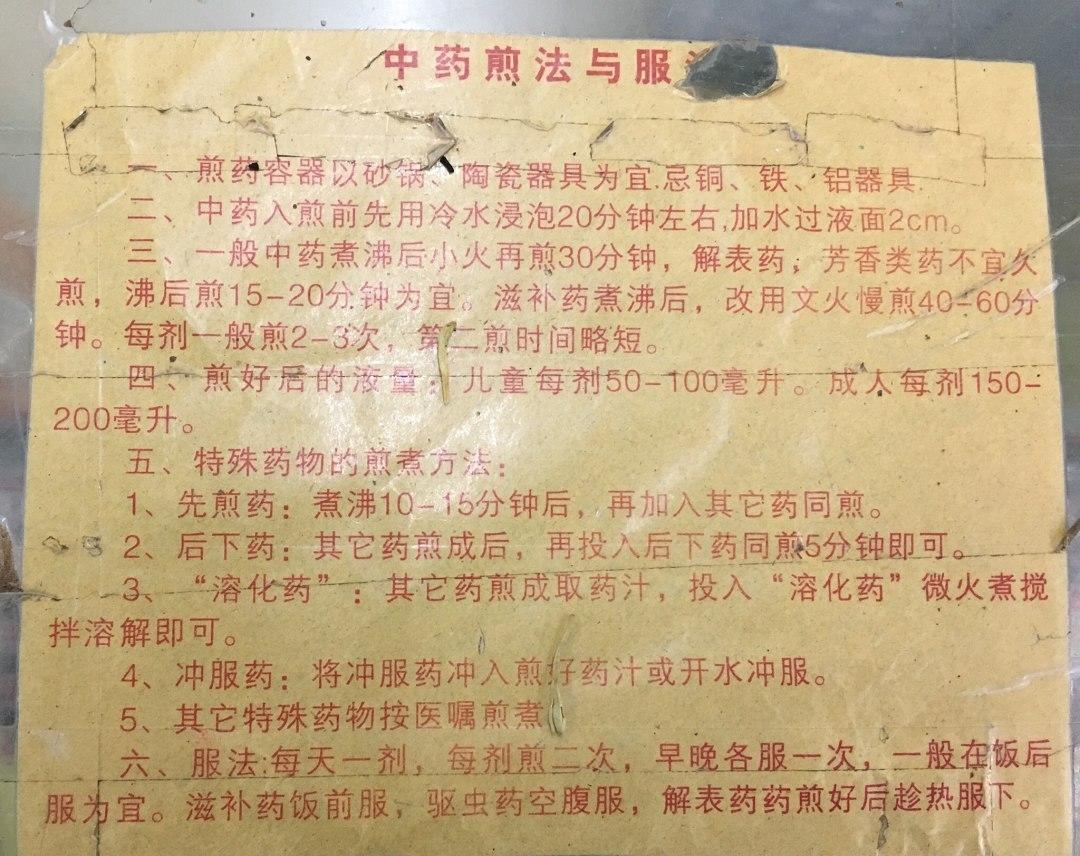 中药煎法与服
一、煎药容器以砂锅、陶瓷器具为宜.忌铜、铁、铝器具.
二、中药入煎前先用冷水浸泡20分钟左右,加水过液面2cm。
三、一般中药煮沸后小火再煎30分钟，解表药，芳香类药不宜久
煎，沸后煎15-20分钟为宜。滋补药煮沸后，改用文火慢煎40-60分
钟。每剂一般煎2-3次，第二煎时间略短。
四、煎好后的液量：儿童每剂50-100毫升。成人每剂150-
200毫升。
五、特殊药物的煎煮方法：
1、先煎药：煮沸10-15分钟后，再加入其它药同煎。
2、后下药：其它药煎成后，再投入后下药同煎5分钟即可。
3、“溶化药”：其它药煎成取药汁，投入“溶化药”微火煮搅
拌溶解即可。
4、冲服药：将冲服药冲入煎好药汁或开水冲服。
5、其它特殊药物按医嘱煎煮
六、服法:每天一剂，每剂煎二次，早晚各服一次，一般在饭后
服为宜。滋补药饭前服，驱虫药空腹服，解表药药煎好后趁热服下。